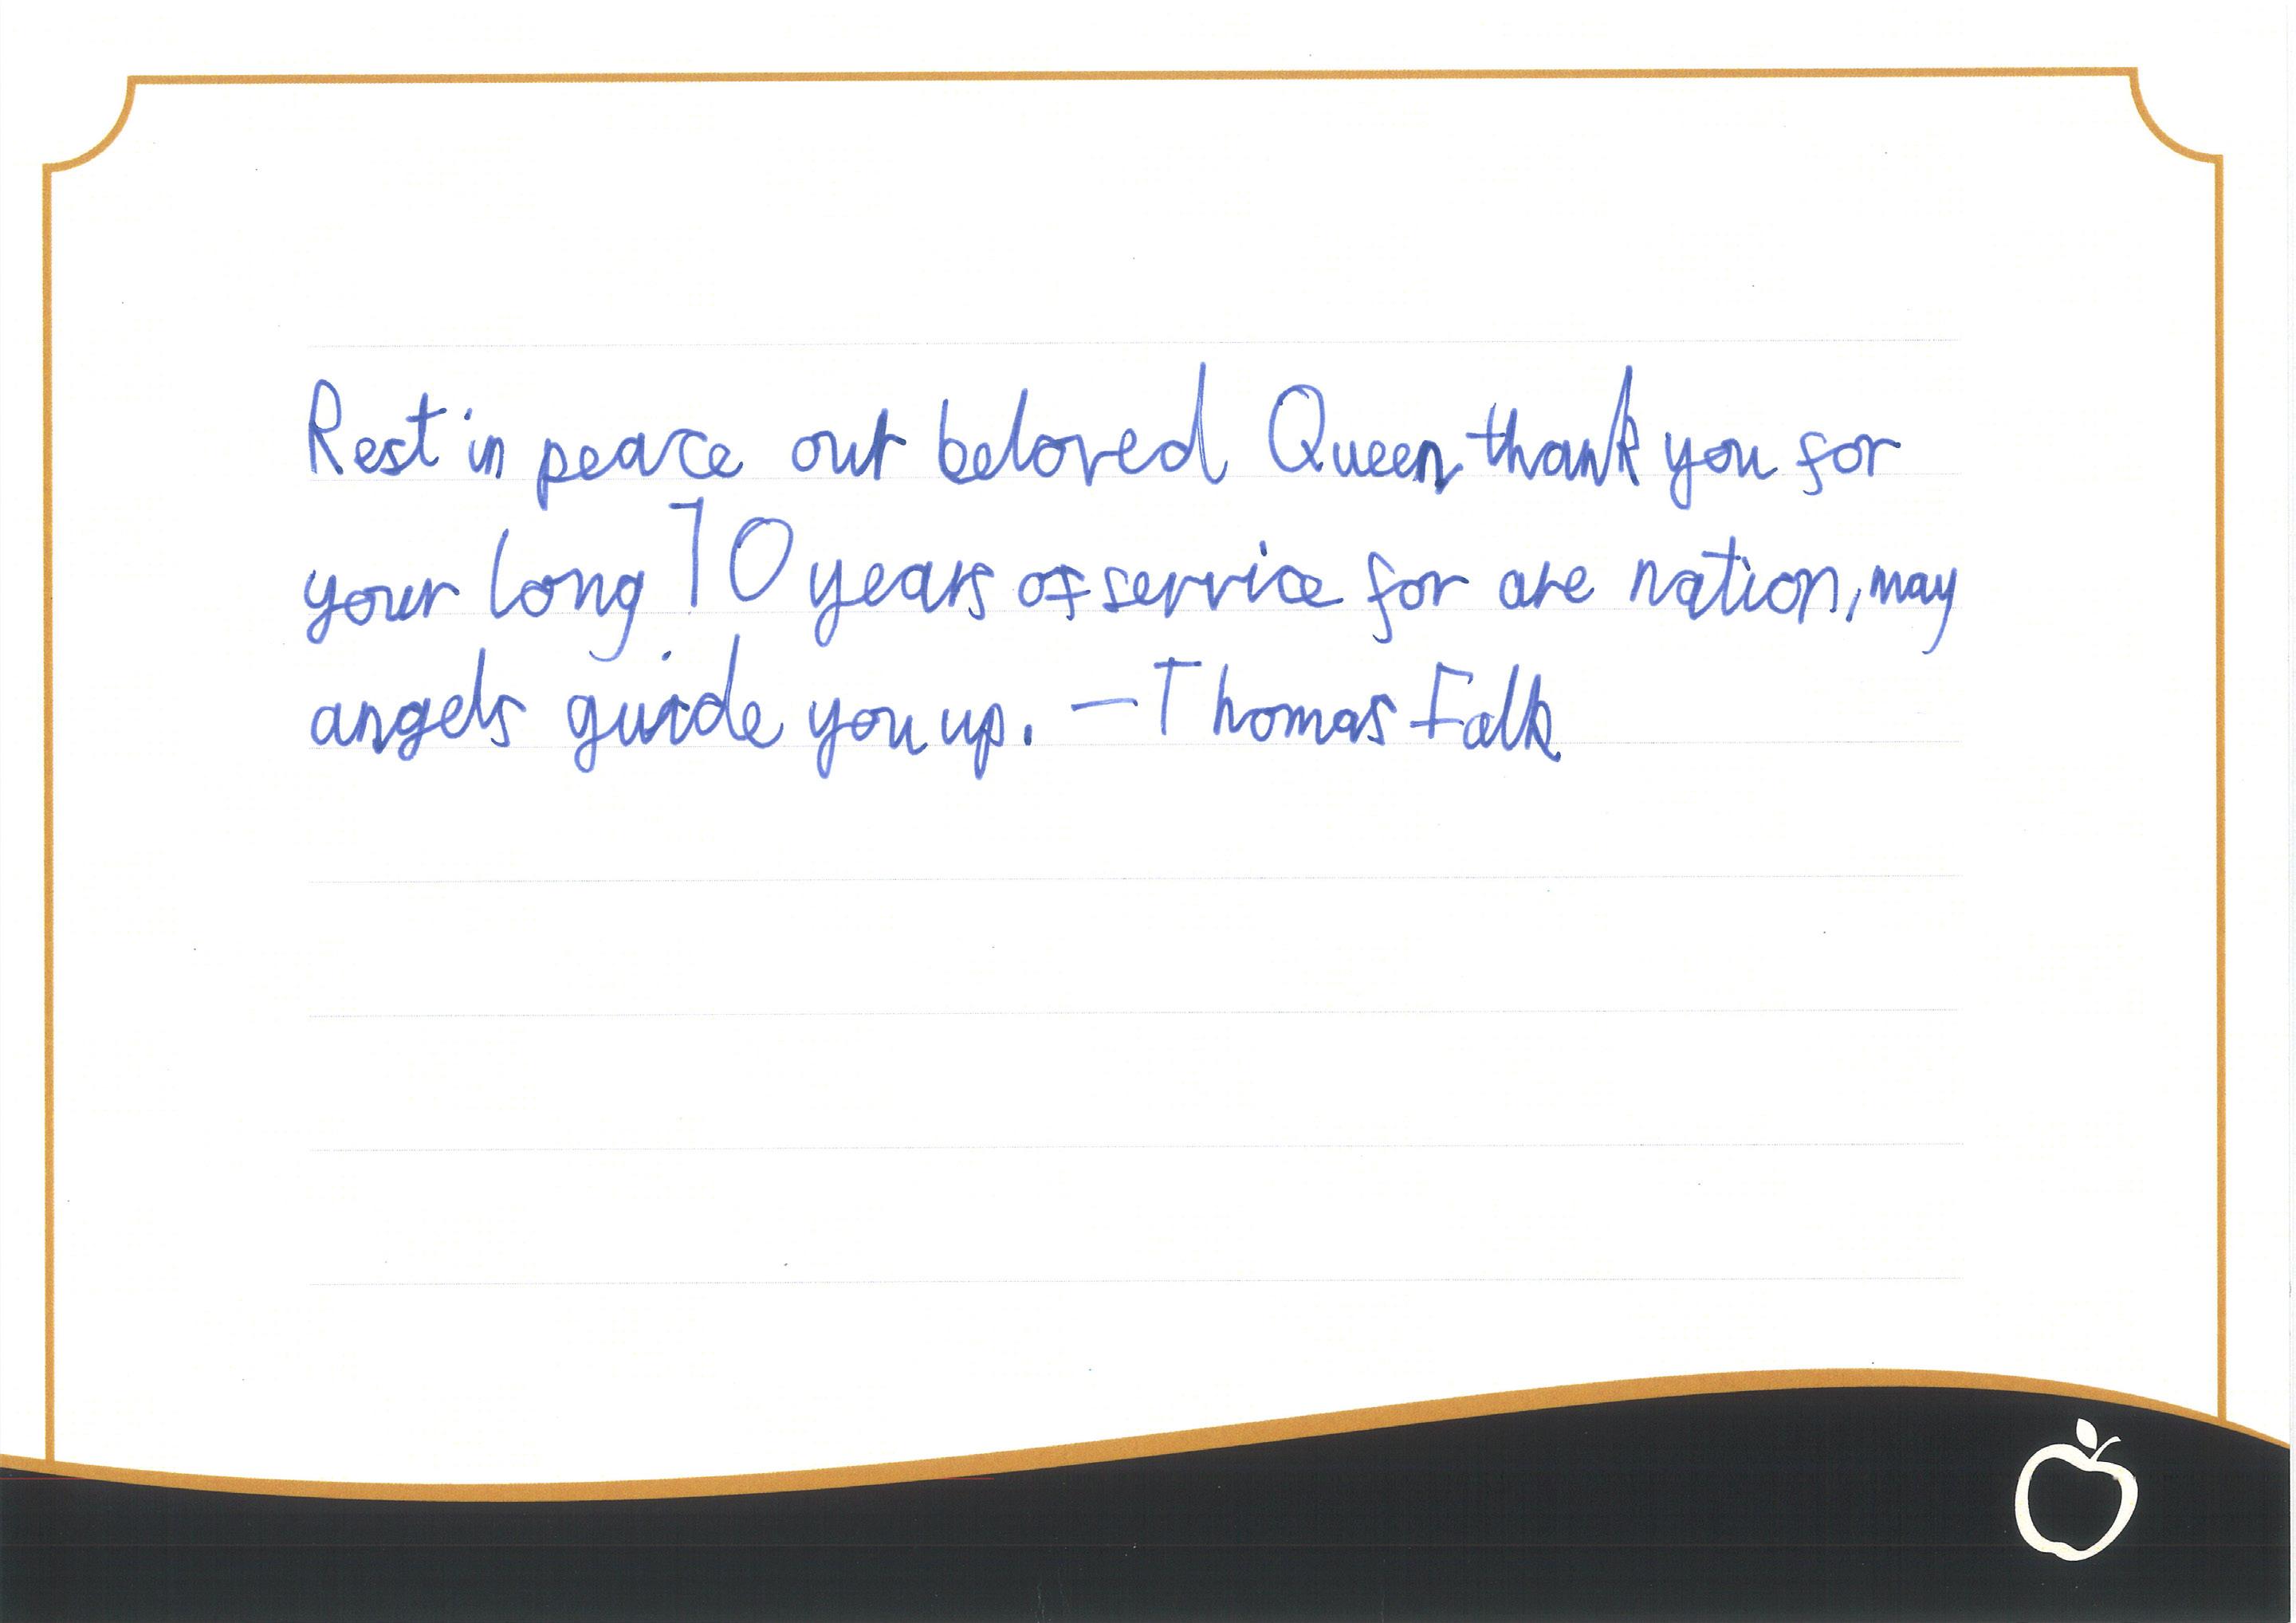 Rest in peace our beloved Queen, thank you for
your long 70 years of service for are nation, may
angels guide you up. – Thomas Falk